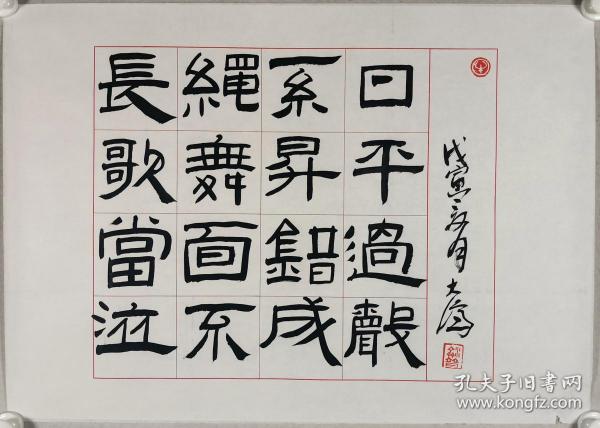 長繩系日
歌舞昇平
當面錯過
泣不成聲
戊寅 月 大為
孔夫子旧书网
www.kongfz.com